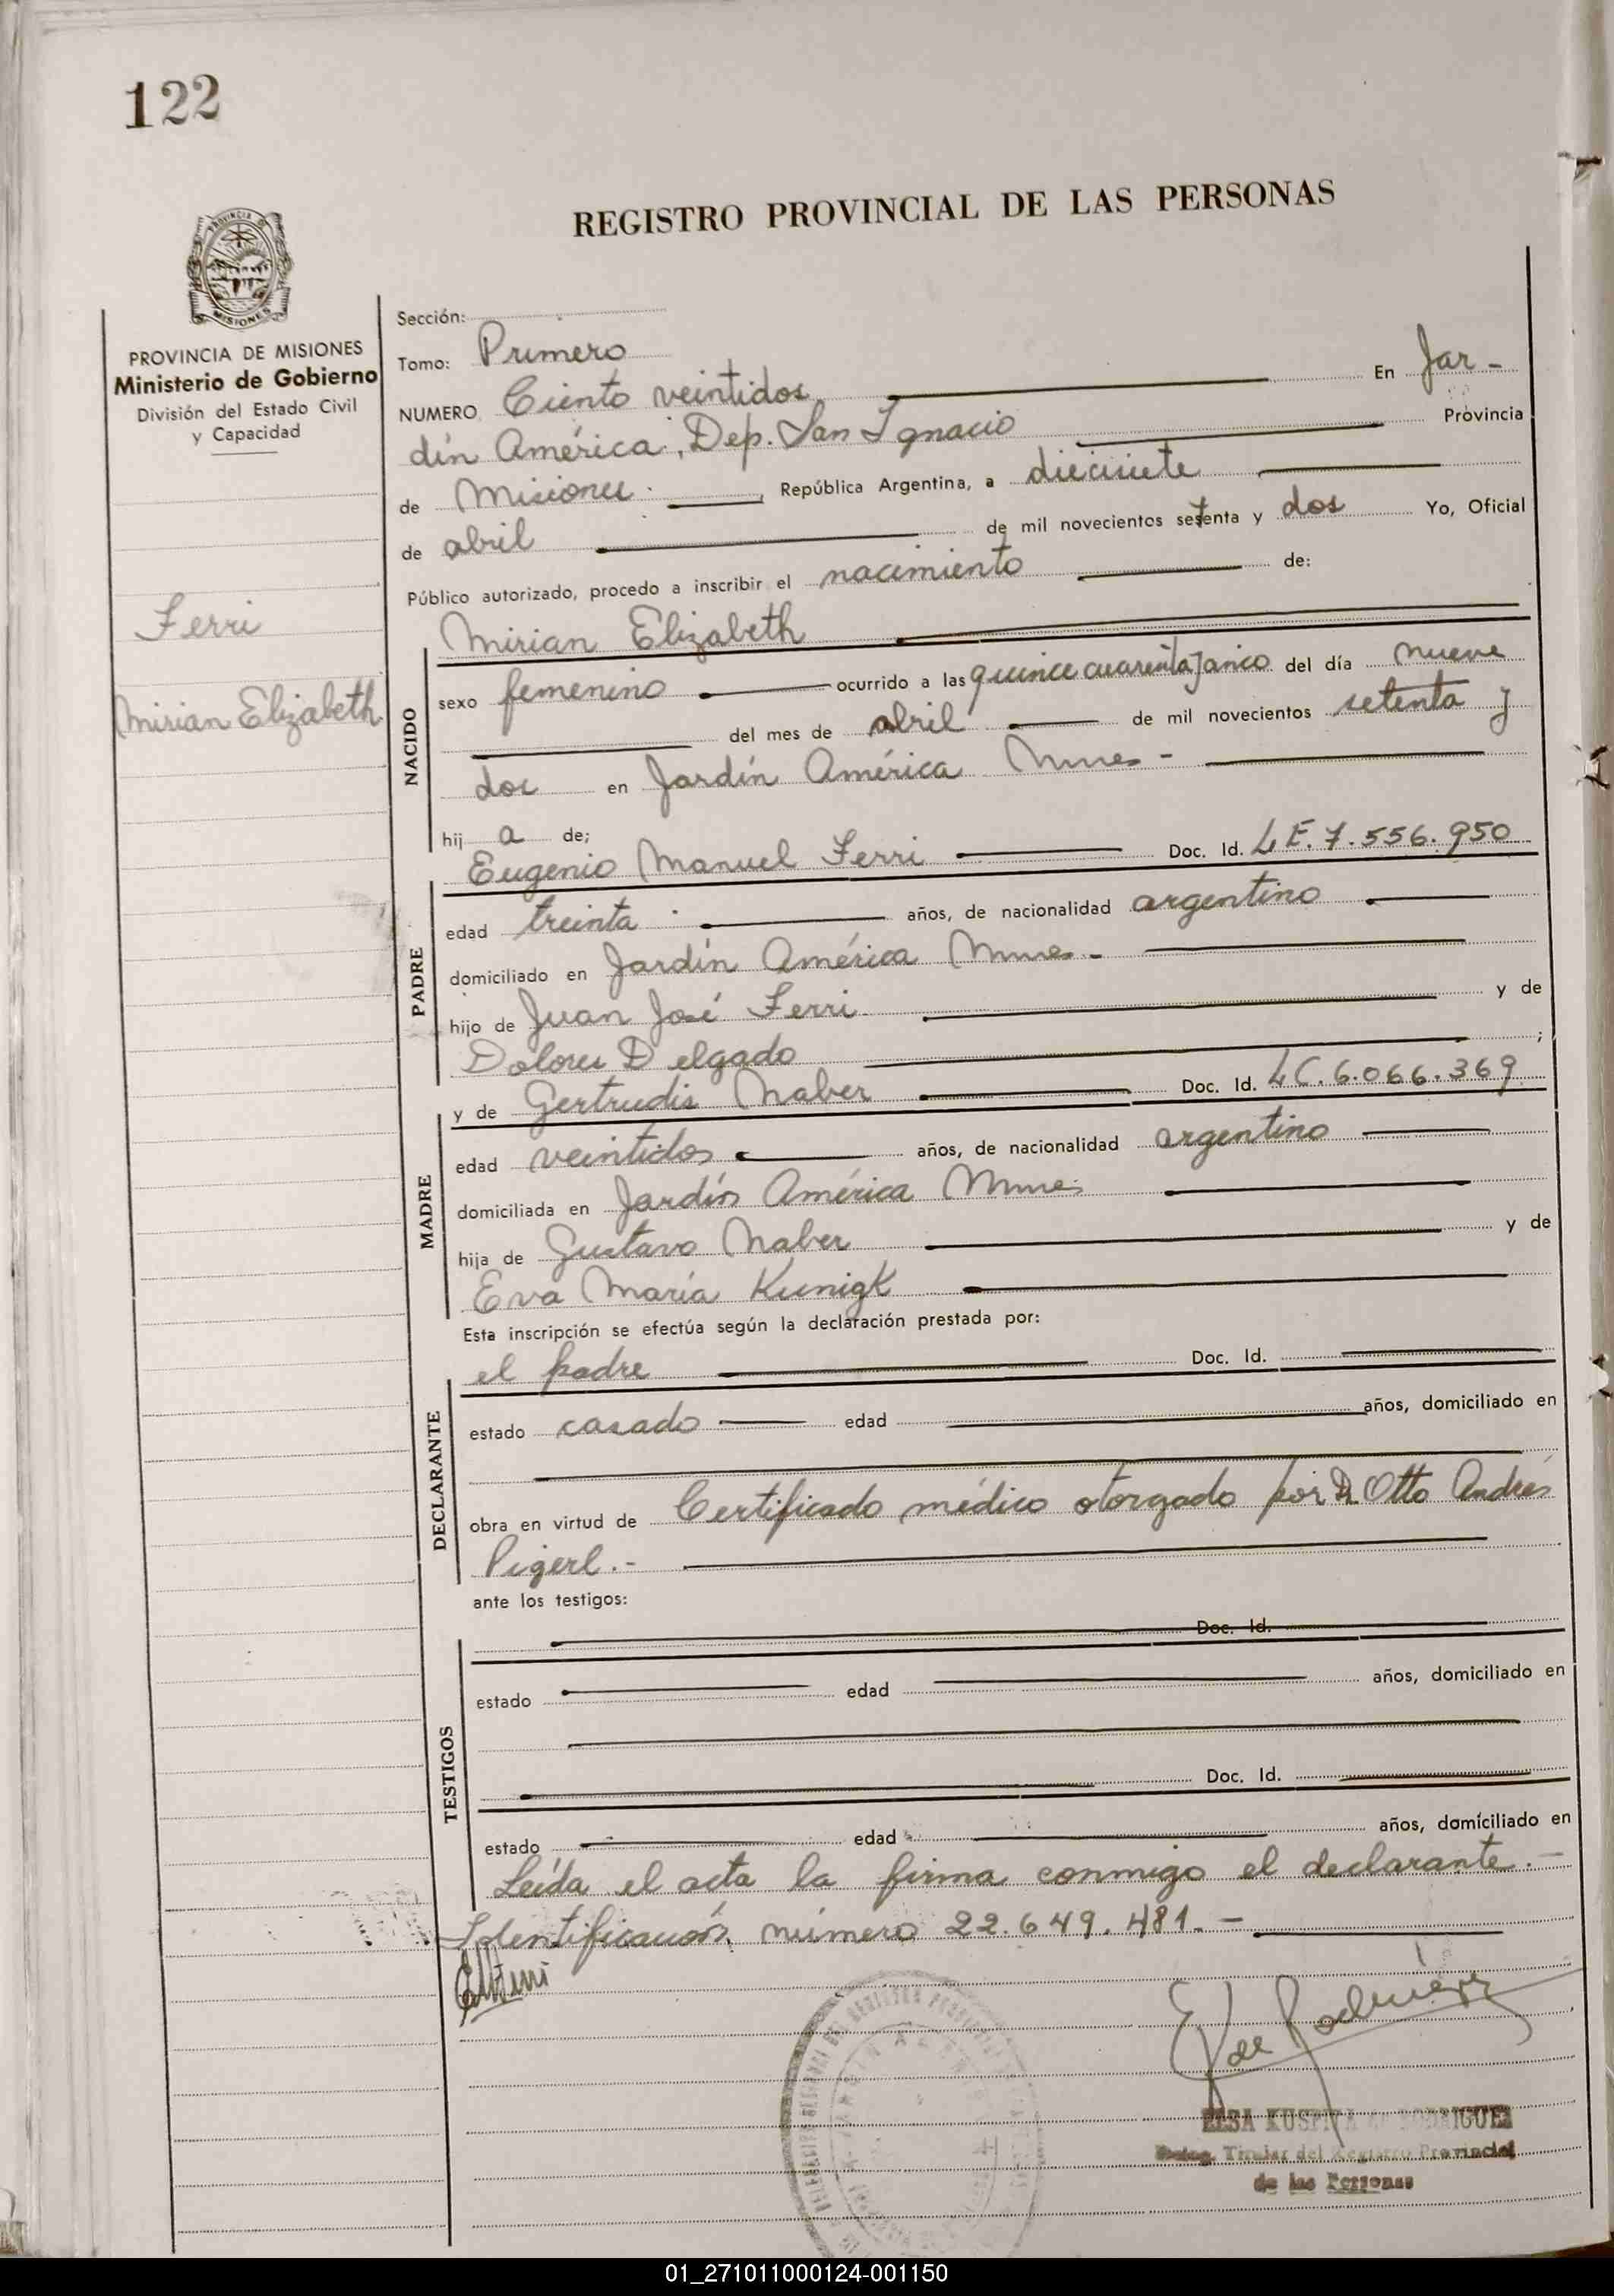 122
REGISTRO PROVINCIAL DE LAS PERSONAS
MISIONES
PROVINCIA DE MISIONES
Ministerio de Gobierno
División del Estado Civil
y Capacidad
Ferri
Mirian Elizabeth
Sección:
Tomo: Primero
NUMERO Ciento veintidos En Jar-
dín América, Dep. San Ignacio Provincia
de Misiones. República Argentina, a diecisiete
de abril de mil novecientos setenta y dos Yo, Oficial
Público autorizado, procedo a inscribir el nacimiento de:
Mirian Elizabeth
NACIDO
sexo femenino ocurrido a las quince cuarenta y cinco del día nueve
del mes de abril de mil novecientos setenta y
dos en Jardín América Mnes-
hij a de;
Eugenio Manuel Ferri Doc. Id. LE. 7.556.950
PADRE
edad treinta años, de nacionalidad argentino
domiciliado en Jardín América Mnes-
hijo de Juan José Ferri y de
Dolores Delgado ;
y de Gertrudis Naber Doc. Id. LC. 6.066.369
MADRE
edad veintidos años, de nacionalidad argentino
domiciliada en Jardín América Mnes
hija de Gustavo Naber y de
Eva María Kunigk
Esta inscripción se efectúa según la declaración prestada por:
el padre Doc. Id.
DECLARANTE
estado casado edad años, domiciliado en
obra en virtud de Certificado médico otorgado por Dr. Otto Andrés
Pigerl.-
ante los testigos:
TESTIGOS
Doc. Id.
estado edad años, domiciliado en
Doc. Id.
estado edad años, domiciliado en
Leída el acta la firma conmigo el declarante.-
Identificación número 22.649.481.-
Titular del Registro Provincial
de las Personas
01_271011000124-001150